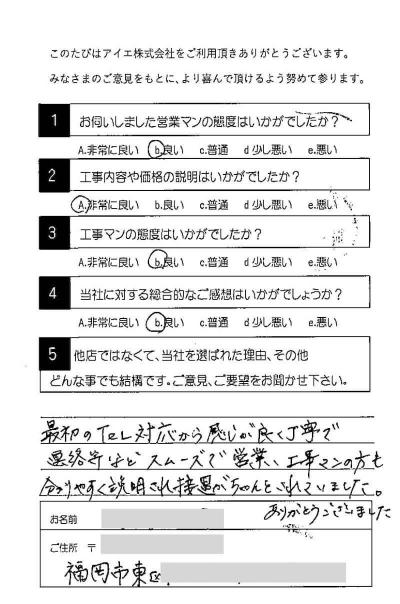 このたびはアイエ株式会社をご利用頂きありがとうございます。
みなさまのご意見をもとに、より喜んで頂けるよう努めて参ります。
1 お伺いしました営業マンの態度はいかがでしたか?
A.非常に良い b.良い c.普通 d 少し悪い e.悪い
2 工事内容や価格の説明はいかがでしたか?
A.非常に良い b.良い c.普通 d 少し悪い e.悪い
3 工事マンの態度はいかがでしたか?
A.非常に良い b.良い c.普通 d 少し悪い e.悪い
4 当社に対する総合的なご感想はいかがでしょうか?
A.非常に良い b.良い c.普通 d 少し悪い e.悪い
5 他店ではなくて、当社を選ばれた理由、その他
どんな事でも結構です。ご意見、ご要望をお聞かせ下さい。
最初のTEL対応から感じが良く丁寧で
連絡等などスムーズで営業、工事マンの方も
分りやすく説明され接遇がちゃんとされていました。
ありがとうございました
お名前
ご住所 〒
福岡市東区